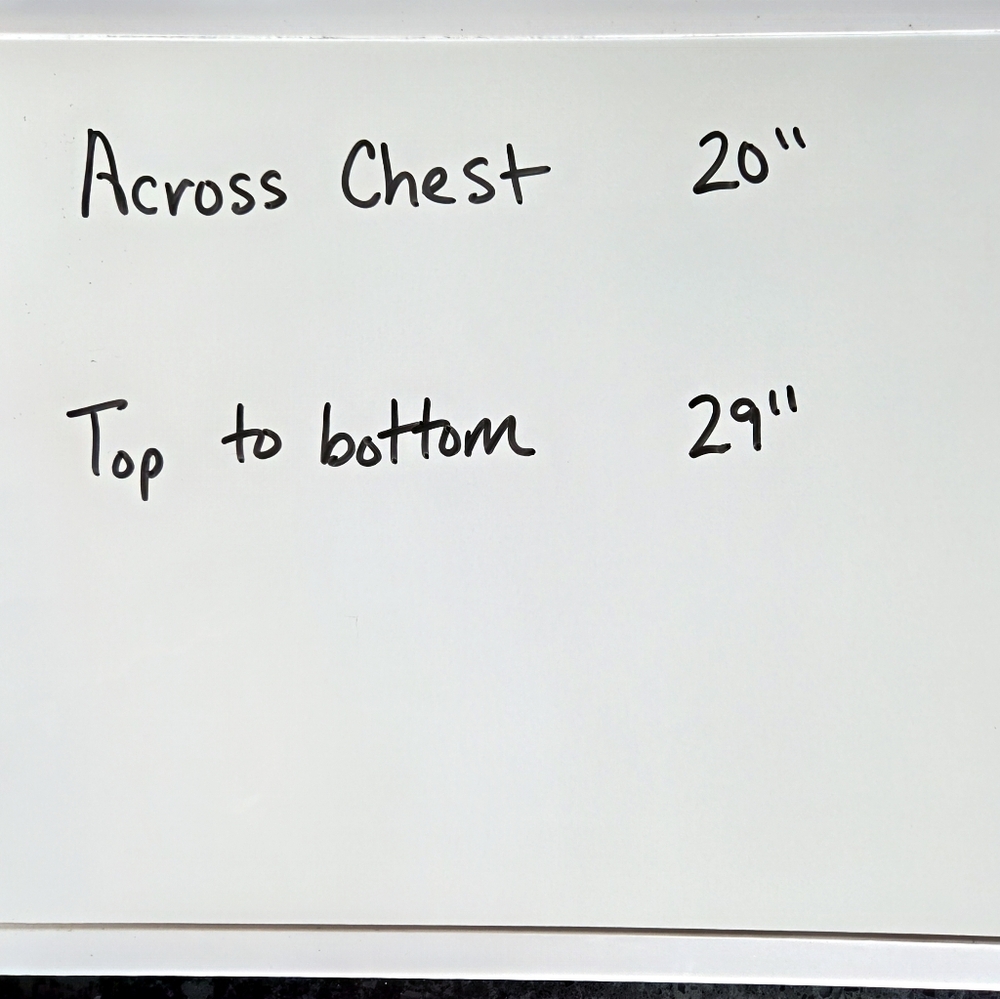 Across Chest 20"
Top to bottom 29"